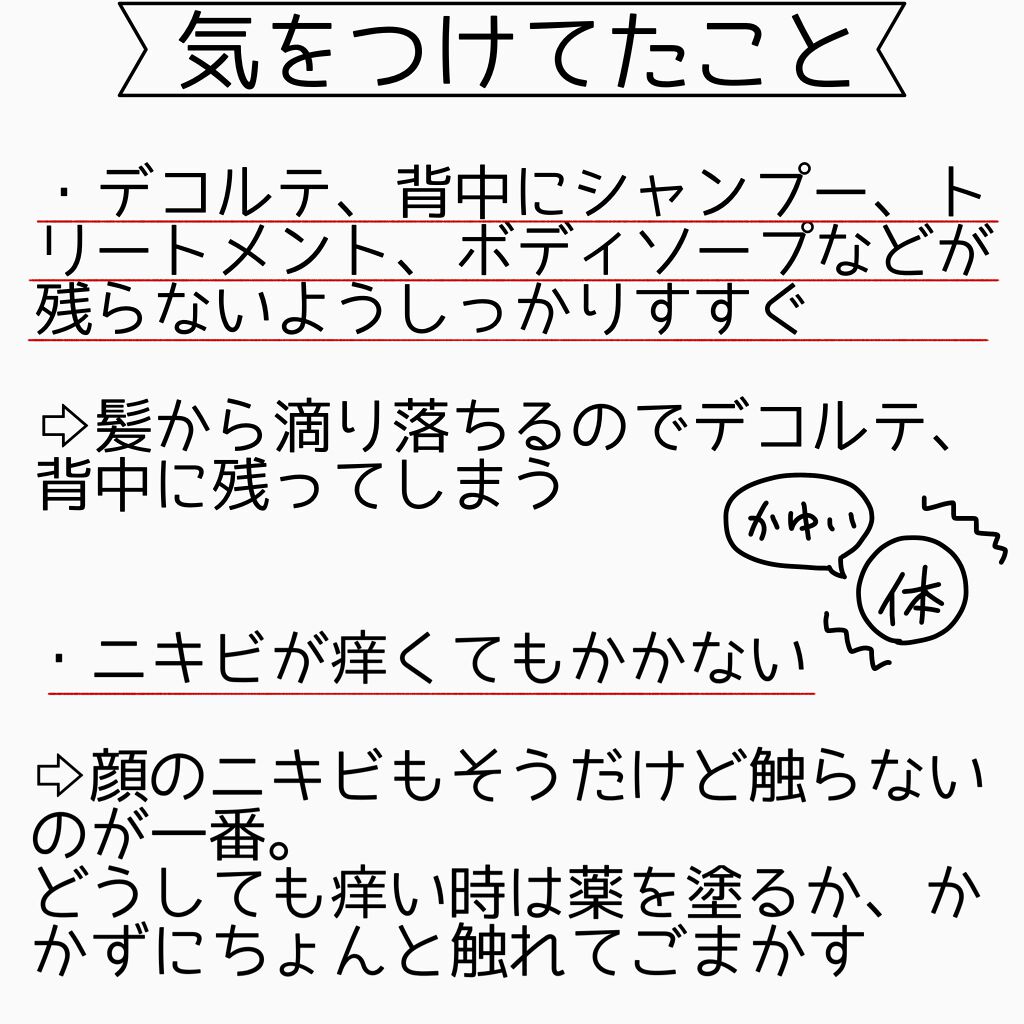 気をつけてたこと
・デコルテ、背中にシャンプー、ト
リートメント、ボディソープなどが
残らないようしっかりすすぐ
⇨髪から滴り落ちるのでデコルテ、
背中に残ってしまう
かゆい
体
・ニキビが痒くてもかかない
⇨顔のニキビもそうだけど触らない
のが一番。
どうしても痒い時は薬を塗るか、か
かずにちょんと触れてごまかす